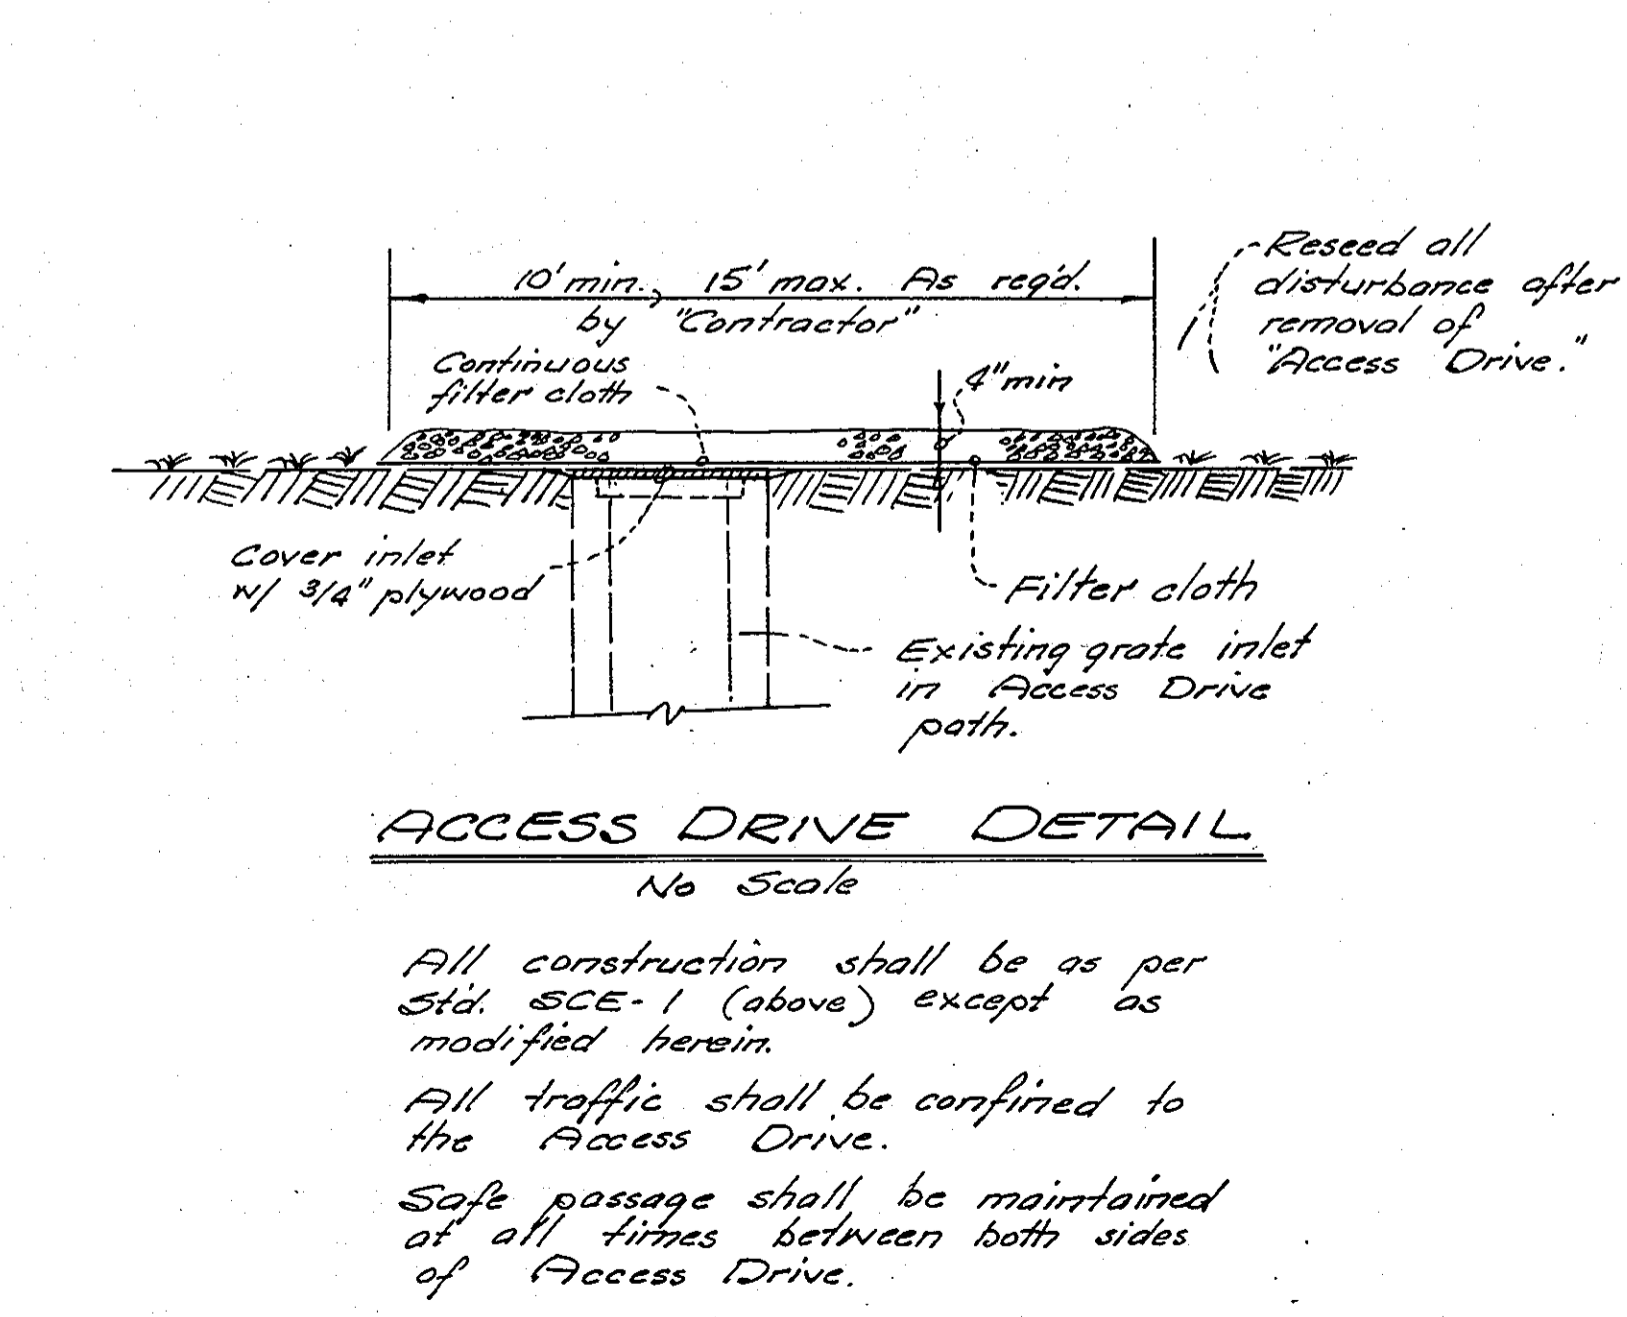 10' min., 15' max. As req'd.
by "Contractor"
Reseed all
disturbance after
removal of
"Access Drive."
Continuous
filter cloth
4" min
Cover inlet
w/ 3/4" plywood
Filter cloth
Existing grate inlet
in Access Drive
path.
ACCESS DRIVE DETAIL
No Scale
All construction shall be as per
Std. SCE-1 (above) except as
modified herein.
All traffic shall be confined to
the Access Drive.
Safe passage shall be maintained
at all times between both sides
of Access Drive.